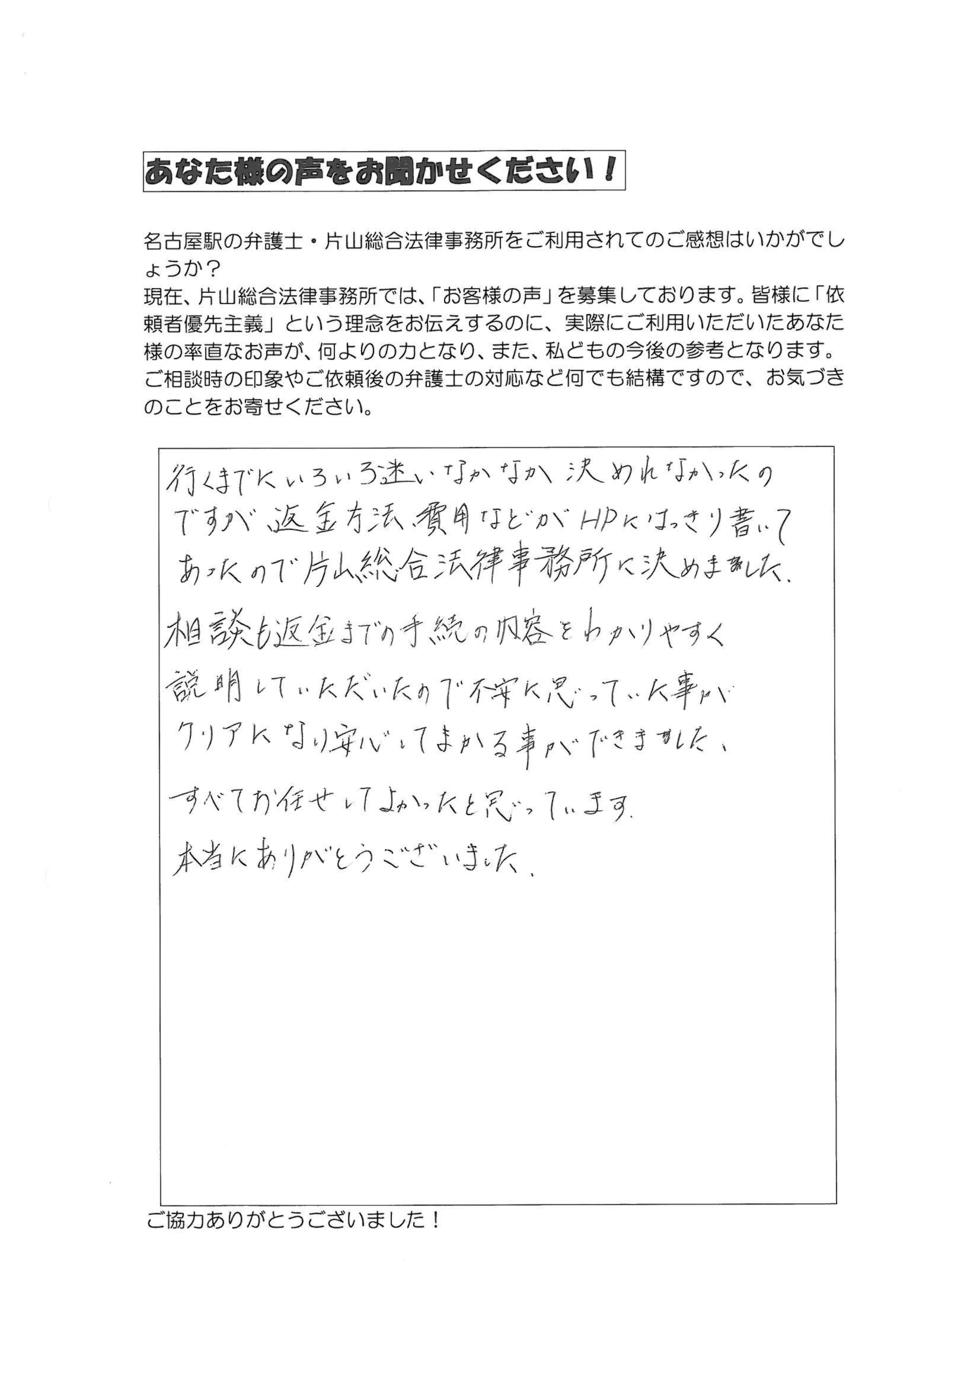 あなた様の声をお聞かせください！
名古屋駅の弁護士・片山総合法律事務所をご利用されてのご感想はいかがでし
ょうか？
現在、片山総合法律事務所では、「お客様の声」を募集しております。皆様に「依
頼者優先主義」という理念をお伝えするのに、実際にご利用いただいたあなた
様の率直なお声が、何よりの力となり、また、私どもの今後の参考となります。
ご相談時の印象やご依頼後の弁護士の対応など何でも結構ですので、お気づき
のことをお寄せください。
行くまでにいろいろ迷いなかなか決めれなかったの
ですが、返金方法、費用などがHPにはっきり書いて
あったので片山総合法律事務所に決めました。
相談も返金までの手続の内容をわかりやすく
説明していただいたので不安に思っていた事が
クリアになり安心してまかる事ができました、
すべてお任せしてよかったと思っています。
本当にありがとうございました。
ご協力ありがとうございました！